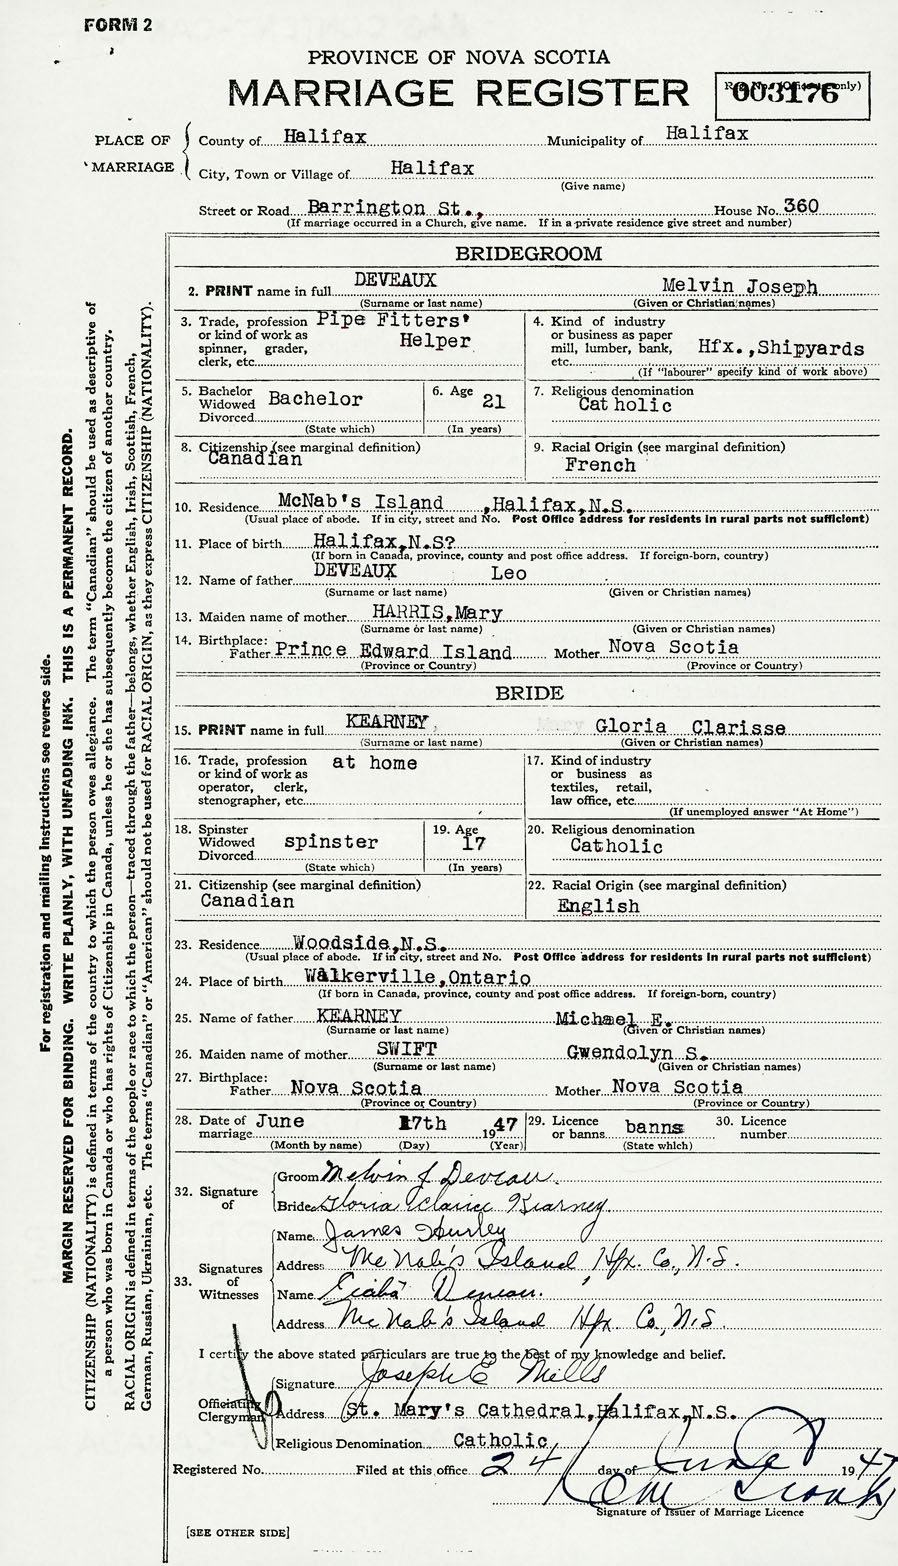 FORM 2
PROVINCE OF NOVA SCOTIA
MARRIAGE REGISTER
003176
PLACE OF MARRIAGE
County of Halifax Municipality of Halifax
City, Town or Village of Halifax
(Give name)
Street or Road Barrington St., House No. 360
(If marriage occurred in a Church, give name. If in a private residence give street and number)
BRIDEGROOM
2. PRINT name in full DEVEAUX Melvin Joseph
(Surname or last name) (Given or Christian names)
3. Trade, profession or kind of work as spinner, grader, clerk, etc. Pipe Fitters' Helper
4. Kind of industry or business as paper mill, lumber, bank, etc. Hfx., Shipyards
(If "labourer" specify kind of work above)
5. Bachelor Widowed Divorced Bachelor
(State which)
6. Age 21
(In years)
7. Religious denomination
Catholic
8. Citizenship (see marginal definition)
Canadian
9. Racial Origin (see marginal definition)
French
10. Residence McNab's Island ,Halifax,N.S.
(Usual place of abode. If in city, street and No. Post Office address for residents in rural parts not sufficient)
11. Place of birth Halifax,N.S?
(If born in Canada, province, county and post office address. If foreign-born, country)
12. Name of father DEVEAUX Leo
(Surname or last name) (Given or Christian names)
13. Maiden name of mother HARRIS,Mary
(Surname or last name) (Given or Christian names)
14. Birthplace: Father Prince Edward Island Mother Nova Scotia
(Province or Country) (Province or Country)
BRIDE
15. PRINT name in full KEARNEY, Gloria Clarisse
(Surname or last name) (Given or Christian names)
16. Trade, profession or kind of work as operator, clerk, stenographer, etc. at home
17. Kind of industry or business as textiles, retail, law office, etc.
(If unemployed answer "At Home")
18. Spinster Widowed Divorced spinster
(State which)
19. Age 17
(In years)
20. Religious denomination
Catholic
21. Citizenship (see marginal definition)
Canadian
22. Racial Origin (see marginal definition)
English
23. Residence Woodside,N.S.
(Usual place of abode. If in city, street and No. Post Office address for residents in rural parts not sufficient)
24. Place of birth Walkerville,Ontario
(If born in Canada, province, county and post office address. If foreign-born, country)
25. Name of father KEARNEY Michael E.
(Surname or last name) (Given or Christian names)
26. Maiden name of mother SWIFT Gwendolyn S.
(Surname or last name) (Given or Christian names)
27. Birthplace: Father Nova Scotia Mother Nova Scotia
(Province or Country) (Province or Country)
28. Date of marriage June 17th 1947
(Month by name) (Day) (Year)
29. Licence or banns banns
(State which)
30. Licence number
32. Signature of
Groom Melvin J Deveau.
Bride Gloria Clarice Kearney.
33. Signatures of Witnesses
Name James Hurley
Address McNab's Island Hfx. Co., N.S.
Name
Address McNab's Island Hfx Co., N.S.
I certify the above stated particulars are true to the best of my knowledge and belief.
Officiating Clergyman
Signature Joseph E Mills
Address St. Mary's Cathedral,Halifax,N.S.
Religious Denomination Catholic
Registered No. Filed at this office 24 day of June 1947
Signature of Issuer of Marriage Licence
[SEE OTHER SIDE]
For registration and mailing instructions see reverse side.
MARGIN RESERVED FOR BINDING. WRITE PLAINLY, WITH UNFADING INK. THIS IS A PERMANENT RECORD.
CITIZENSHIP (NATIONALITY) is defined in terms of the country to which the person owes allegiance. The term "Canadian" should be used as descriptive of
a person who was born in Canada or who has rights of Citizenship in Canada, unless he or she has subsequently become the citizen of another country.
RACIAL ORIGIN is defined in terms of the people or race to which the person—traced through the father—belongs, whether English, Irish, Scottish, French,
German, Russian, Ukrainian, etc. The terms "Canadian" or "American" should not be used for RACIAL ORIGIN, as they express CITIZENSHIP (NATIONALITY).